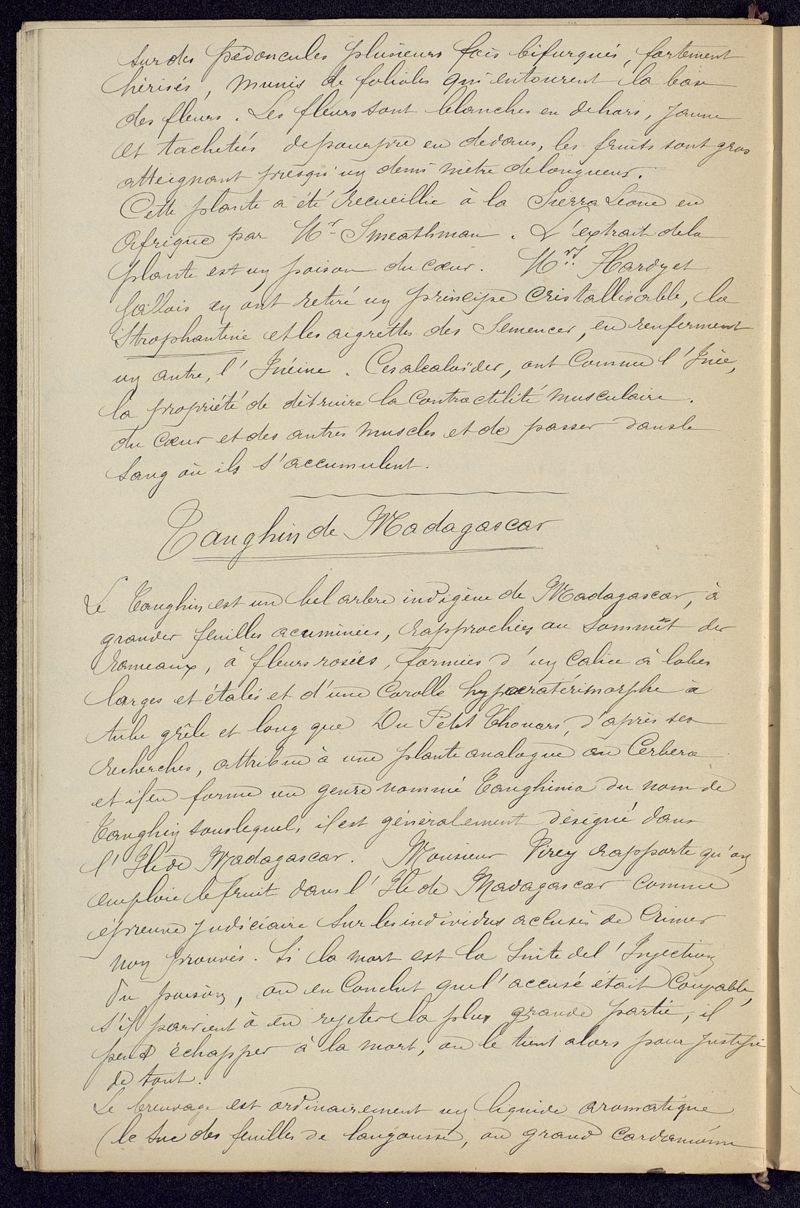 sur des pédoncules plusieurs fois bifurqués, fortement
hérisés, munis de folioles qui entourent la base
des fleurs. Les fleurs sont blanches en dehors, jaune
et tachetées de pourpre en dedans, les fruits sont gros
atteignant presqu'un demi mètre de longueur.
Cette plante a été recueillie à la Sierra Leone en
Afrique par Mr Smeathman. L'extrait de la
plante est un poison du cœur. Mrs Hardy et
Gallois en ont retiré un principe cristallisable, la
Strophantine et les aigrettes des Semences, en renferment
un autre, l'Inéine. Ces alcaloïdes, ont comme l'Inée,
la propriété de détruire la contractilité musculaire.
du cœur et des autres muscles et de passer dans le
sang où ils s'accumulent.
Tanghin de Madagascar
Le Tanghin est un bel arbre indigène de Madagascar, à
grandes feuilles acuminées, rapprochées au sommet des
rameaux, à fleurs rosées, formées d'un calice à lobes
larges et étalés et d'une corolle hypocratérimorphe à
tube grêle et long que Du Petit Thouars, d'après ses
recherches, attribue à une plante analogue au Cerbera
et il en forme un genre nommé Tanghinia du nom de
Tanghin sous lequel, il est généralement désigné dans
l'Ile de Madagascar. Monsieur Virey rapporte qu'on
emploie le fruit dans l'Ile de Madagascar comme
épreuve judiciaire sur les individus accusés de Crimes
non prouvés. Si la mort est la suite de l'Injection
du poison, on en conclut que l'accusé était Coupable,
s'il parvient à en rejeter la plus grande partie, il
peut échapper à la mort, on le tient alors pour justifié
de tout.
Le breuvage est ordinairement un liquide aromatique
(le suc des feuilles de langousse, ou grand Cardamome